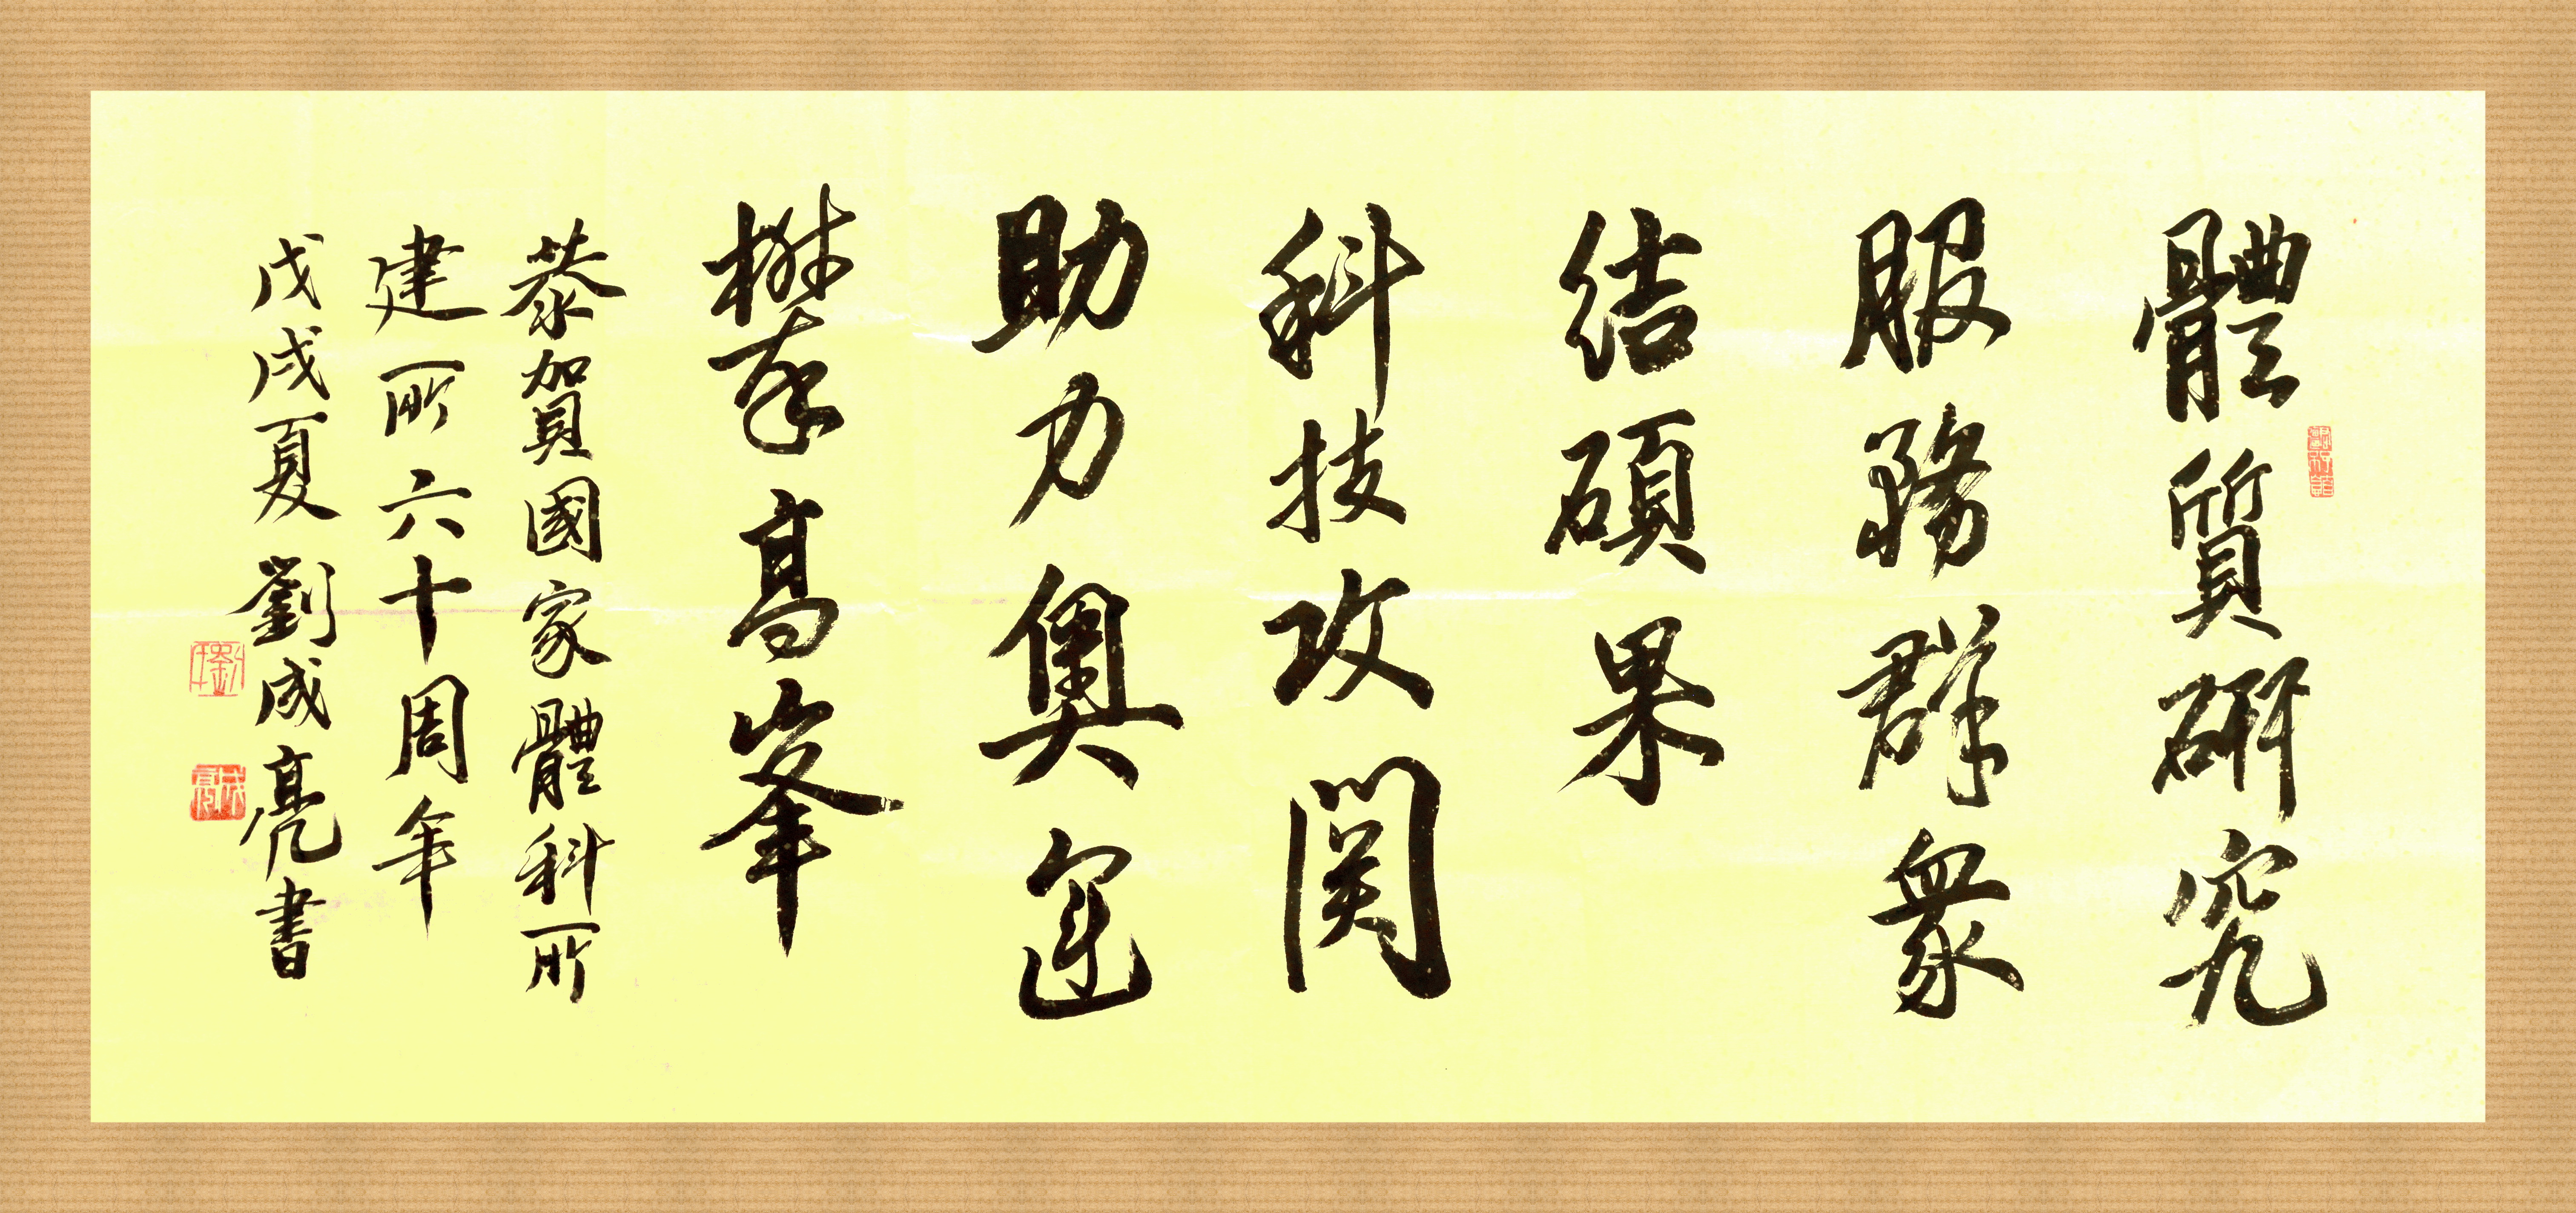 體質研究
服務群衆
結碩果
科技攻関
助力奧運
攀高峯
恭賀國家體科所
建所六十周年
戊戌夏 劉成亮書